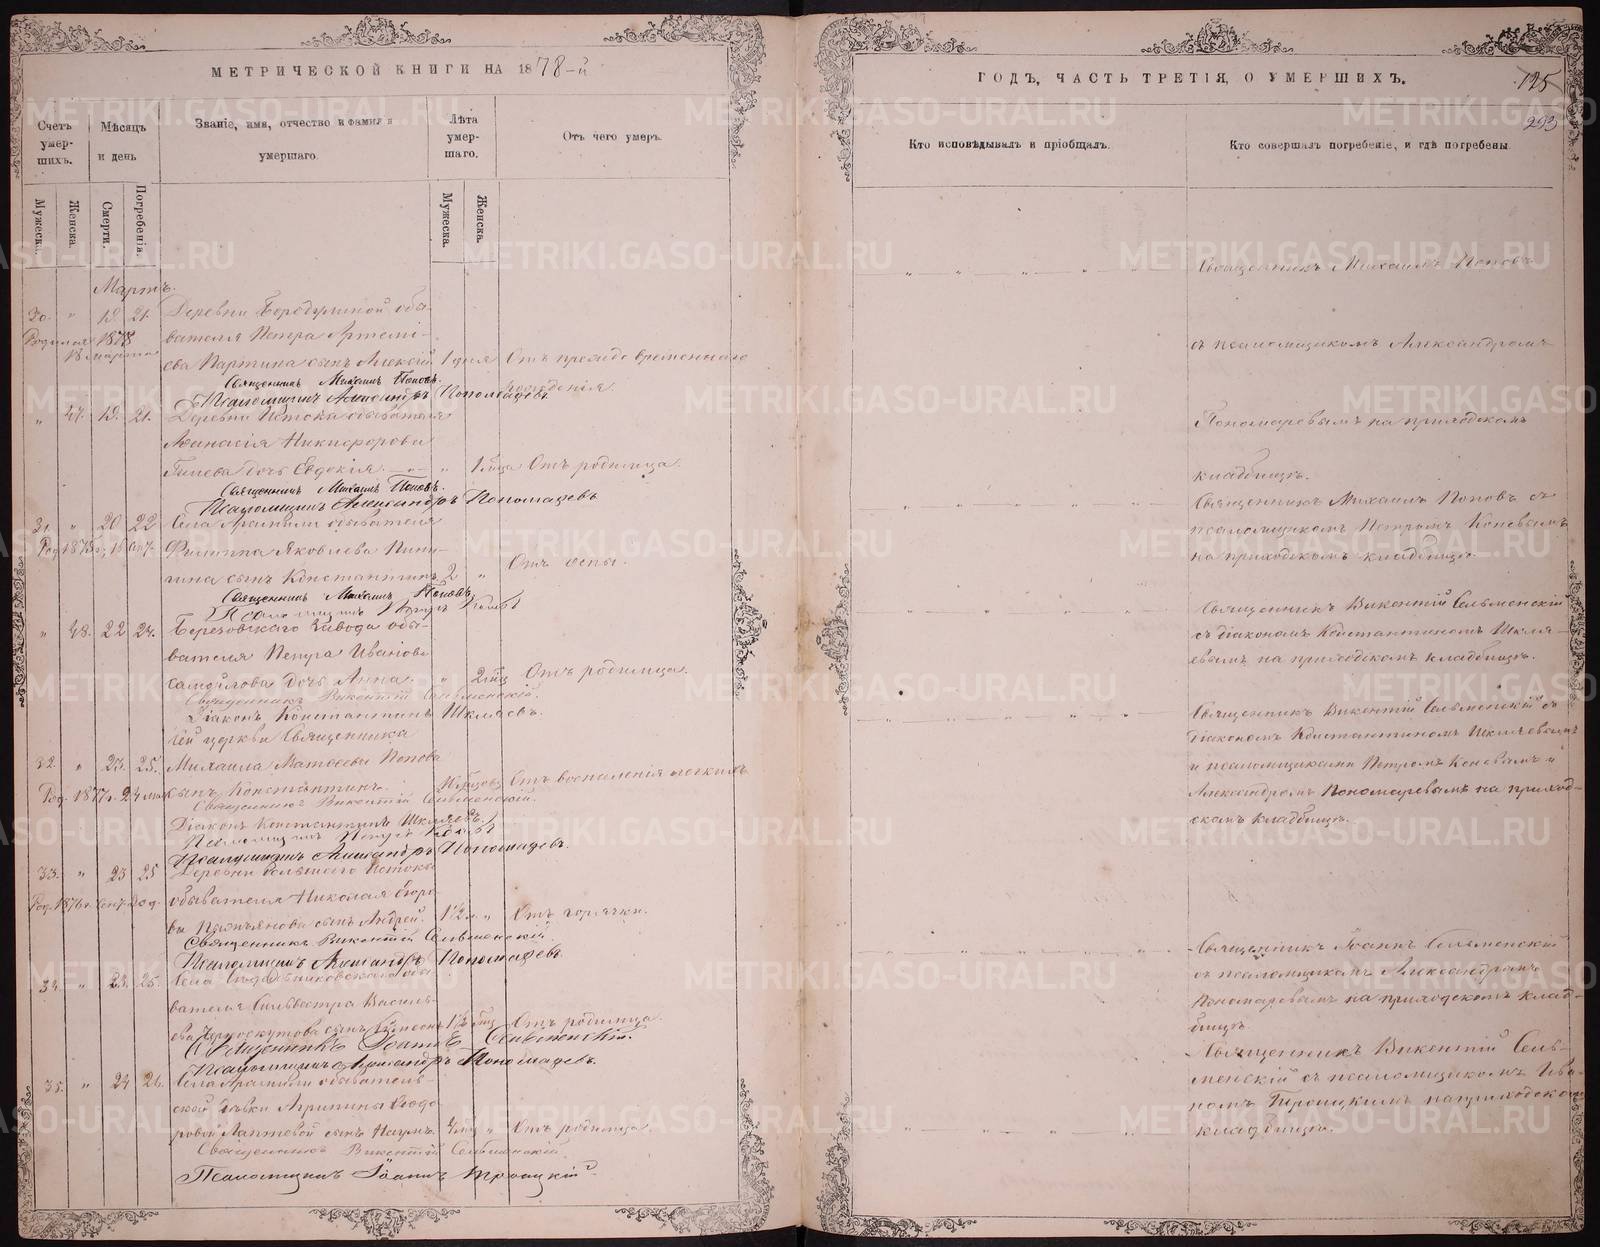 МЕТРИЧЕСКОЙ КНИГИ НА 1878-й
Счетъ умер-шихъ.
Мѣсяцъ и день
Званіе, имя, отчество и фамилія умершаго.
Лѣта умер-шаго.
Отъ чего умеръ.
Мужеска.
Женска.
Смерти.
Погребенія.
Мужеска.
Женска.
Мартъ.
30. " 19 21. Деревни Бородулиной обы-
Родился 1878 вателя Петра Артемі-
18 марта
ева Партина сынъ Алексій 1 дня Отъ преждевременнаго
рожденія.
Священникъ Михаилъ Поповъ.
Псаломщикъ Александръ Пономаревъ
" 47. 19. 21. Деревни Истока обывателя
Аѳанасія Никифорова
Гилева дочь Евдокія. " 1 мца Отъ родимца.
Священникъ Михаилъ Поповъ.
Псаломщикъ Александръ Пономаревъ
31. " 20 22 Села Арамили обывателя
Филиппа Яковлева
сынъ Константинъ 2 " Отъ оспы.
Священникъ Михаилъ Поповъ
Псаломщикъ Петръ
" 48. 22 24. Березовскаго завода обы-
вателя Петра Иванова
Самойлова дочь Анна. " 2 мц Отъ родимца.
Священникъ Викентій Сельменскій.
Діаконъ Константинъ Шкляевъ.
Сей церкви Священника
32. " 23. 25. Михаила Матѳеева Попова
Род. 1877 г. 24 сынъ Константинъ. Отъ воспаленія легкихъ
Священникъ Викентій Сельменскій.
Діаконъ Константинъ Шкляевъ.
Псаломщикъ Петръ
Псаломщикъ Александръ Пономаревъ.
33. " 23 25 Деревни Большаго Истока
Род. 1876 г. обывателя Николая
сынъ Андрей. 1½ г. " Отъ горячки.
Священникъ Викентій Сельменскій
Псаломщикъ Александръ Пономаревъ.
34. " 23. 25. Села обы-
вателя Сильвестра Василь-
ева Черноскутова сынъ 1½ мц Отъ родимца.
Священникъ Іоаннъ Сельменскій.
Псаломщикъ Александръ Пономаревъ.
35. " 24 26. Села Арамили обыватель-
ской дѣвки Агрипины Ѳедо-
ровой Лаптевой сынъ Наумъ. мц " Отъ родимца.
Священникъ Викентій Сельменскій.
Псаломщикъ Іоаннъ Троицкій.
ГОДЪ, ЧАСТЬ ТРЕТІЯ, О УМЕРШИХЪ.
125
293
Кто исповѣдывалъ и пріобщалъ.
Кто совершалъ погребеніе, и гдѣ погребены
Священникъ Михаилъ Поповъ
съ псаломщикомъ Александромъ
Пономаревымъ на приходскомъ
кладбищѣ.
Священникъ Михаилъ Поповъ съ
псаломщикомъ Петромъ Коневымъ
на приходскомъ кладбищѣ.
Священникъ Викентій Сельменскій
съ діакономъ Константиномъ Шкля-
евымъ на приходскомъ кладбищѣ.
Священникъ Викентій Сельменскій съ
діакономъ Константиномъ Шкляевымъ
и псаломщиками Петромъ Коневымъ и
Александромъ Пономаревымъ на приход-
скомъ кладбищѣ.
Священникъ Іоаннъ Сельменскій
съ псаломщикомъ Александромъ
Пономаревымъ на приходскомъ клад-
бищѣ.
Священникъ Викентій Сель-
менскій съ псаломщикомъ Іоан-
номъ Троицкимъ на приходскомъ
кладбищѣ.
METRIKI.GASO-URAL.RU